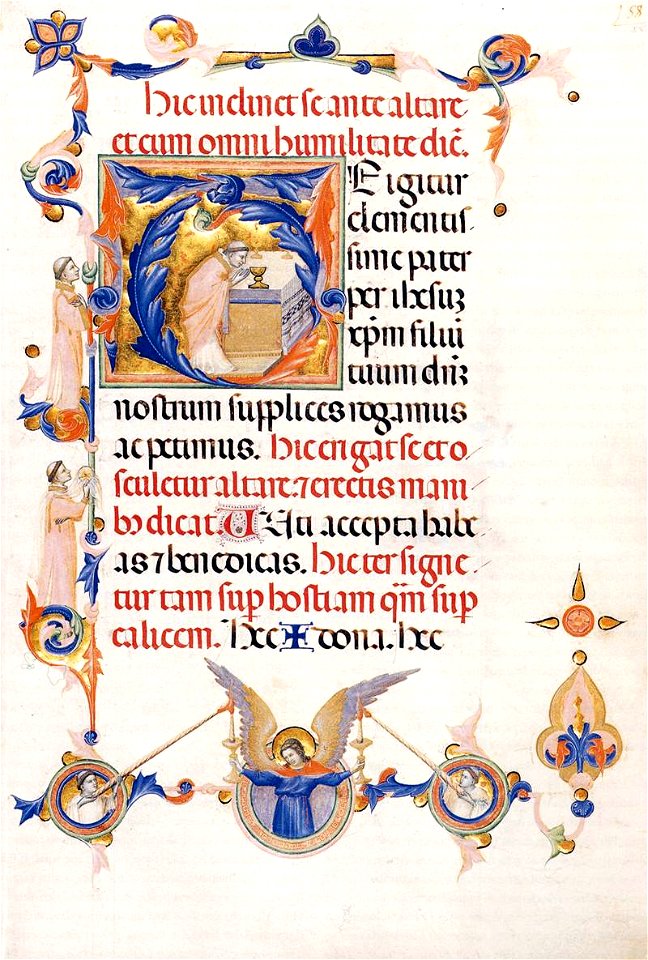 158
hic inclinet se ante altare
et cum omni humilitate dic̄.
TE igitur
clementis
sime pater
per ihesuꝫ
xp̄m filiū
tuum dn̄ꝫ
nostrum supplices rogamus
ac petimus. hic erigat se et o
sculetur altare. ⁊ erectis mani
bꝫ dicat. UAti accepta habe
as ⁊ benedicas. hic ter signe
tur tam suꝑ hostiam qm̄ suꝑ
calicem. hec ✠ dona. hec